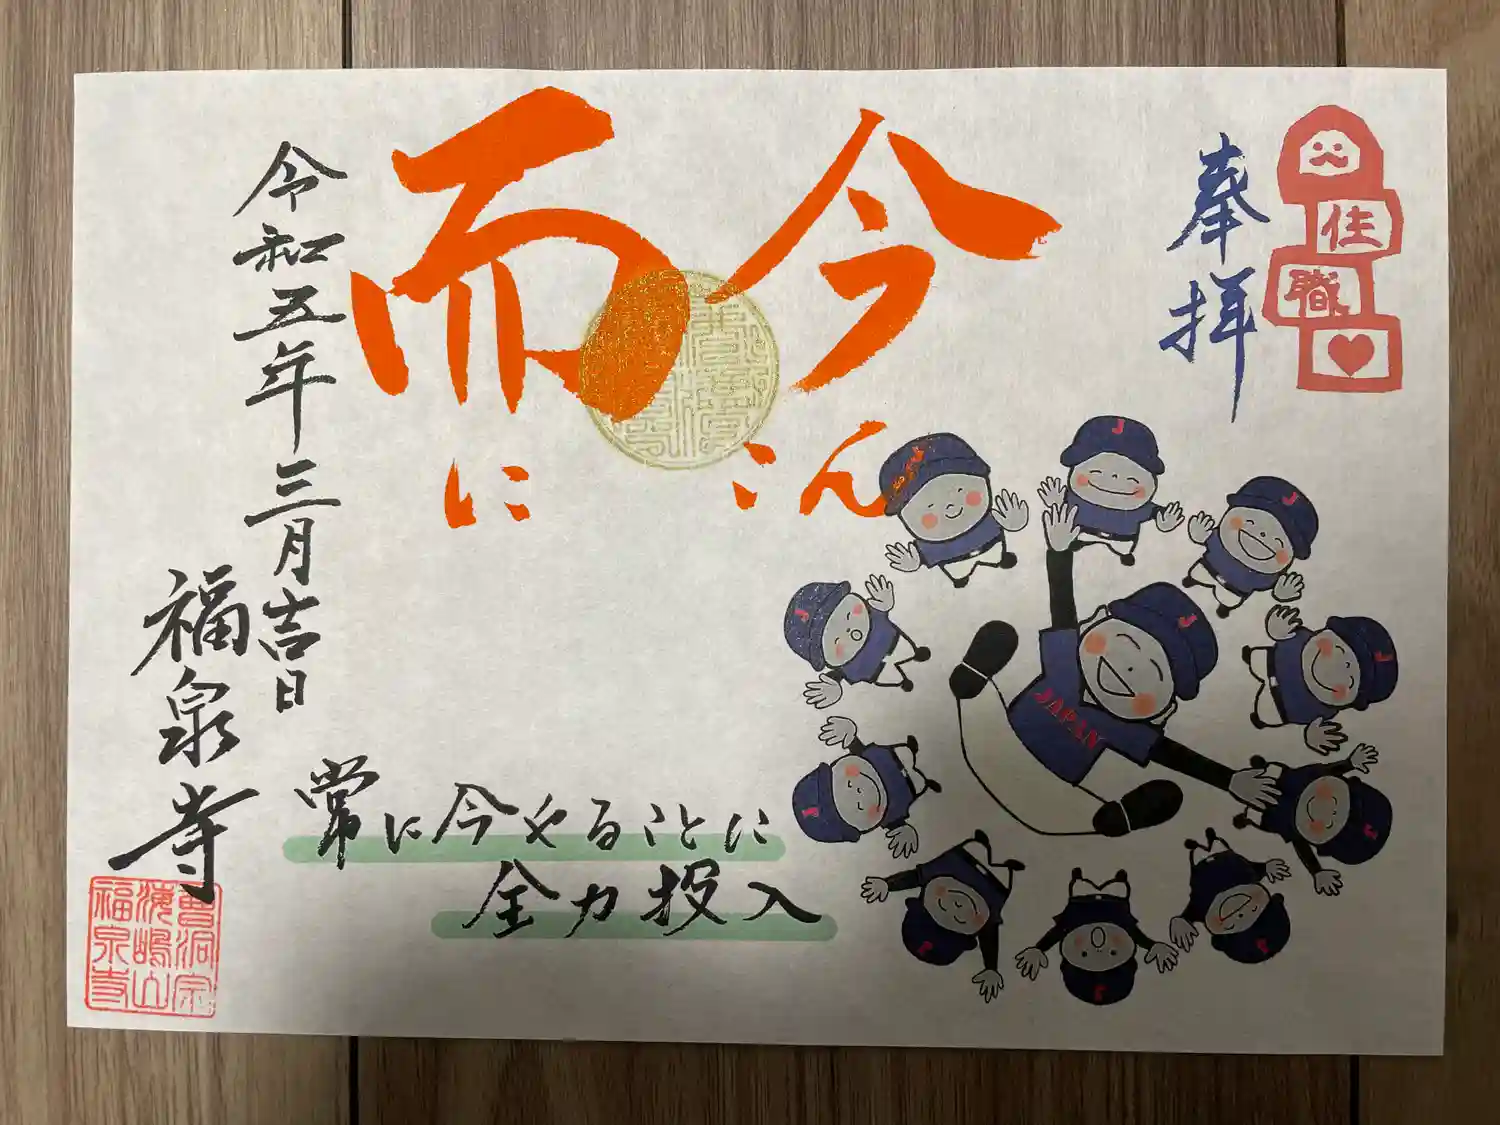 奉拝
住
職
今
こん
而
に
令和五年三月吉日
福泉寺
常に今やることに
全力投入
曹洞宗
海嶋山
福泉寺
JAPAN
J
J
J
J
J
J
J
J
J
J